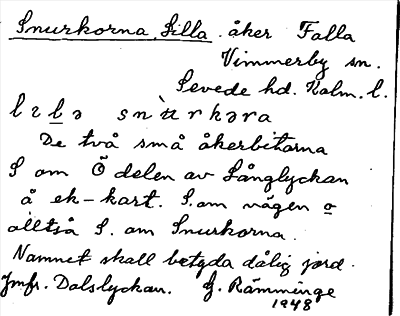 Snurkorna, Lilla åker Falla
Vimmerby sn.
Sevede hd. Kalm. l.
lɩlə snùrkəra
De två små åkerbitarna
S om Ö delen av Långlyckan
å ek-kart. S. om vägen o
alltså S. om Snurkorna.
Namnet skall betyda dålig jord.
Jmfr. Dalslyckan. G. Rämminge
1948